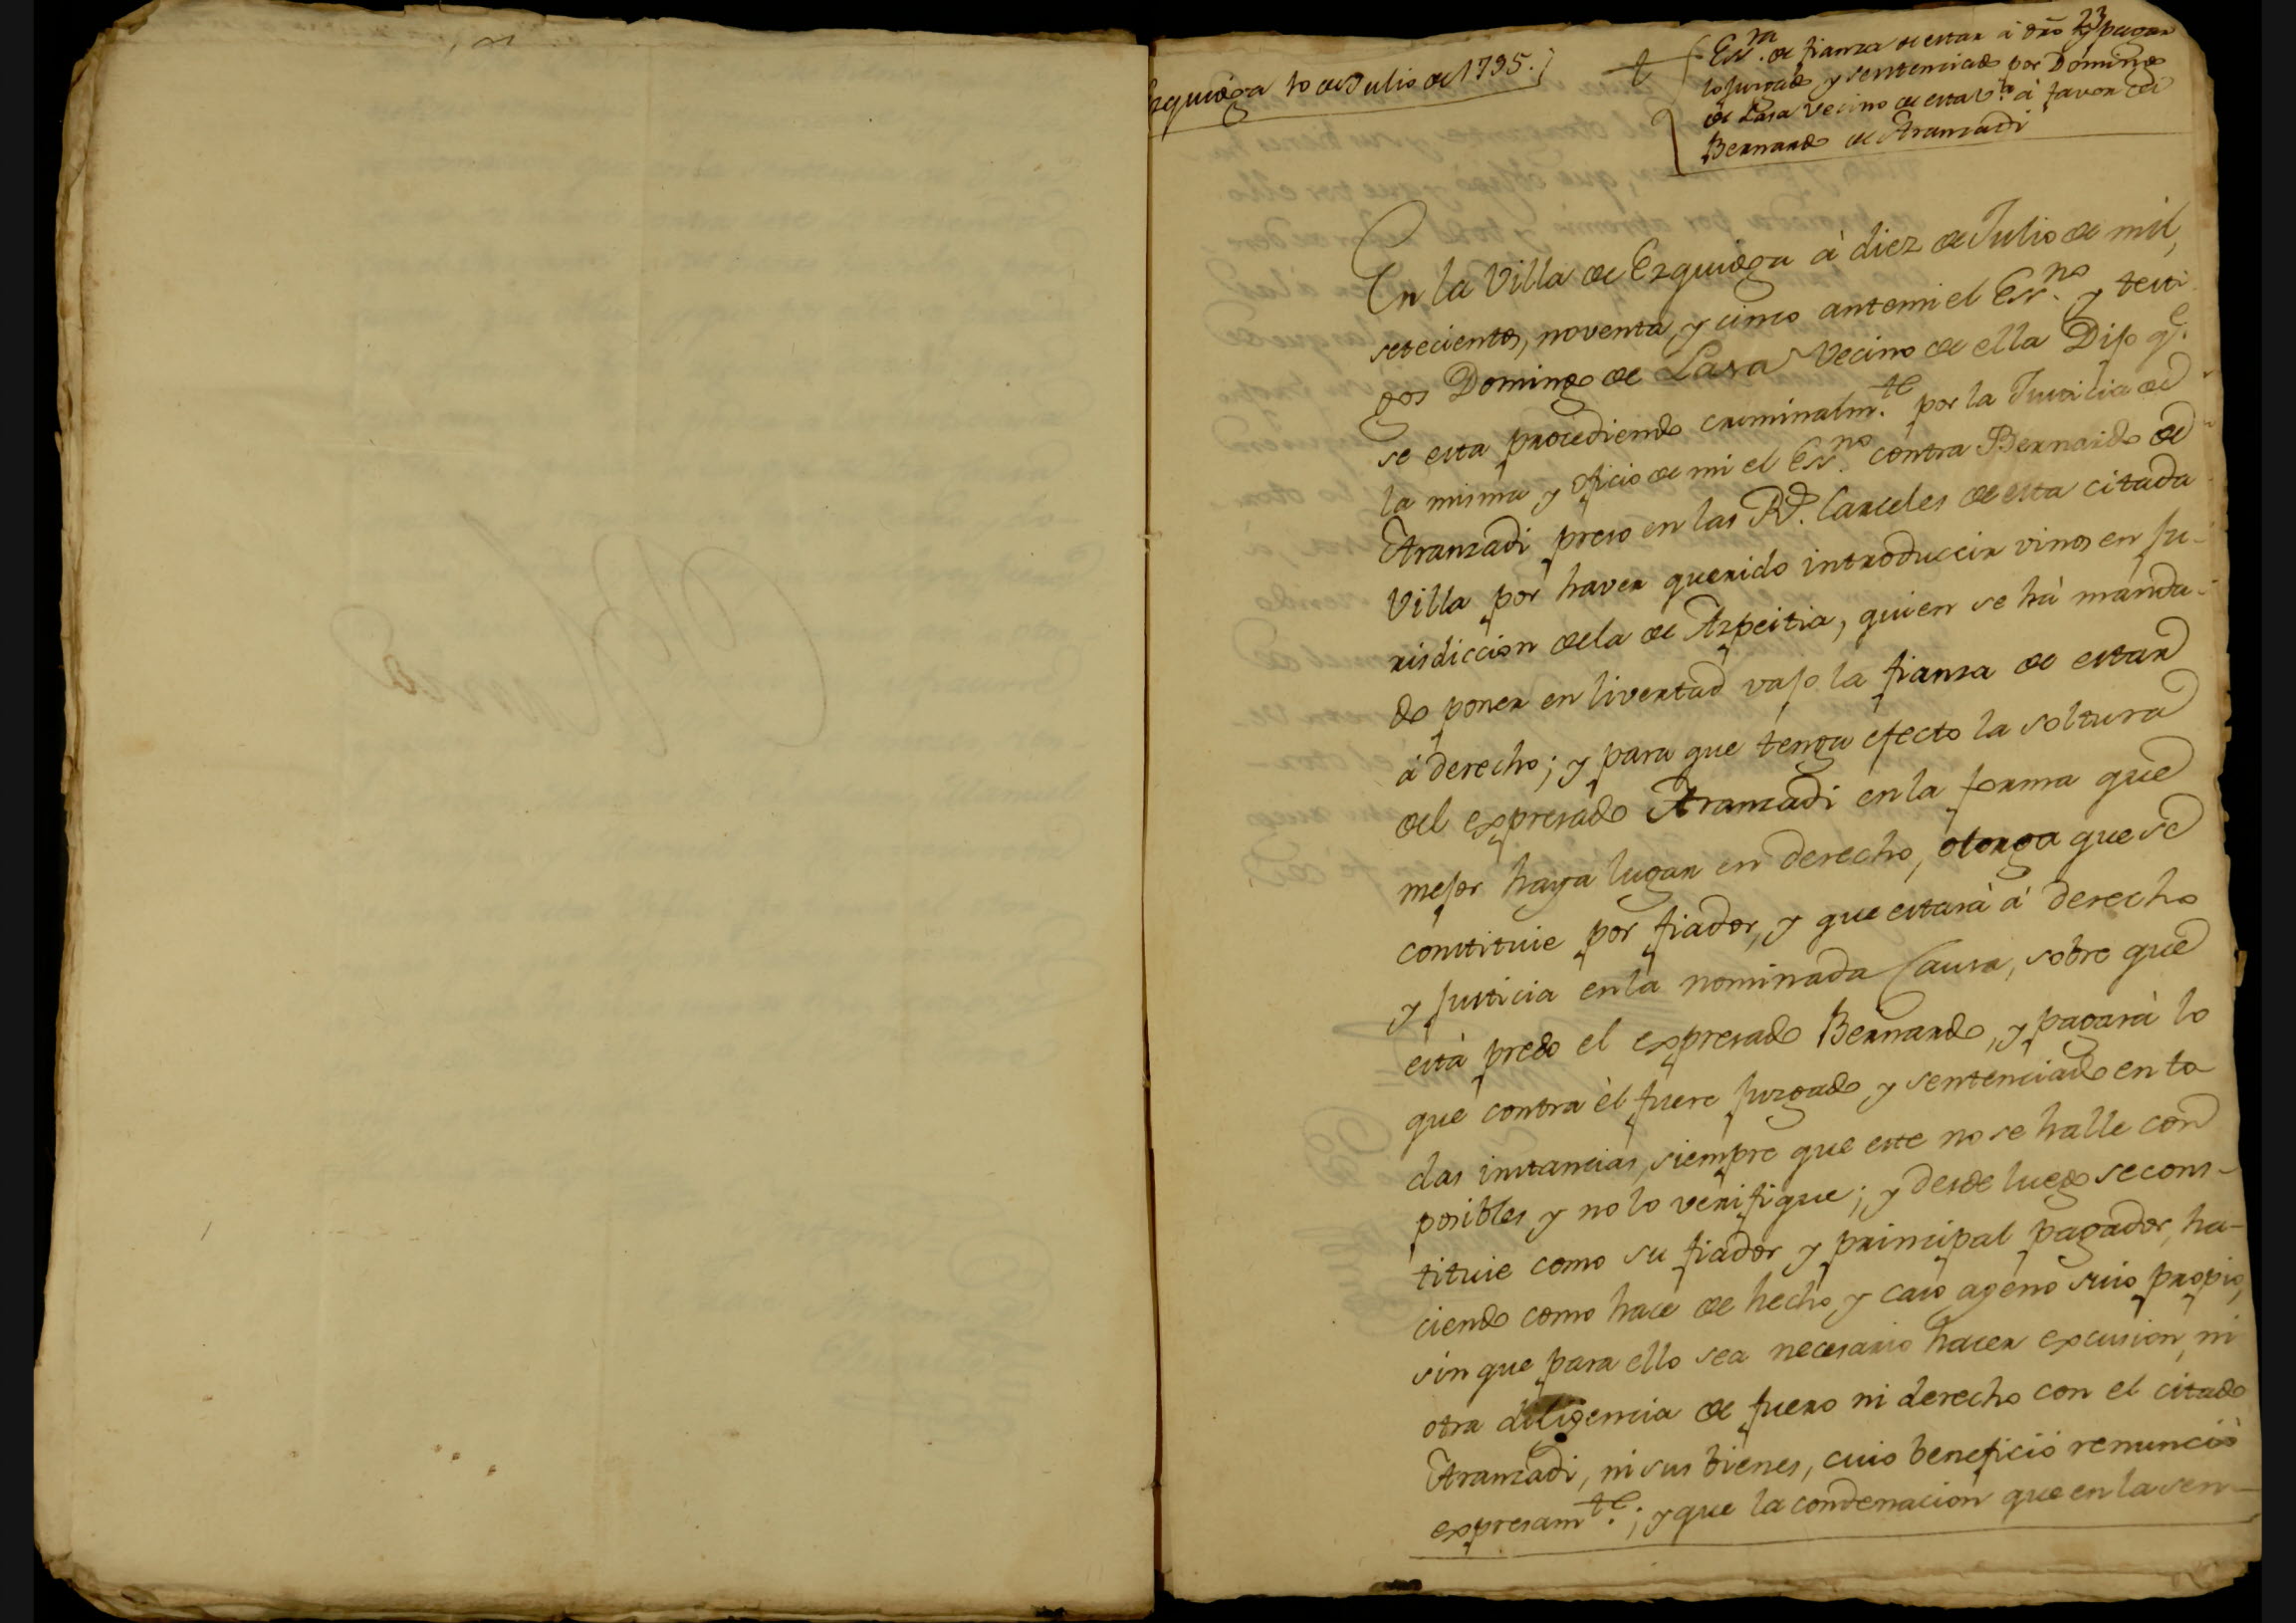 Ezquioga 10 de Julio de 1795.
23
Essra. de fianza de estar á dro y pagar
lo juzgado y sentenciado por Domingo
de Lasa Vecino de esta Va. á favor de
Bernardo de Aranzadi
En la Villa de Ezquioga à diez de Julio de mil,
setecientos, noventa, y cinco ante mi el Essno. y testi
gos Domingo de Lasa Vecino de ella Dijo qe.
se esta procediendo criminalmte. por la Justicia de
la misma y oficio de mi el Essno. contra Bernardo de
Aranzadi preso en las Rs. Carceles de esta citada
Villa por haver querido introduccir vinos en ju-
risdiccion dela de Azpeitia, quien se hà manda-
do poner en livertad vajo la fianza de estar
á derecho; y para que tenga efecto la soltura
del expresado Aranzadi en la forma que
mejor haya lugar en derecho, otorga que se
constituie por fiador, y que estarà á derecho
y Justicia en la nominada Causa, sobre que
està preso el expresado Bernardo, y pagarà lo
que contra èl fuere juzgado y sentenciado en to
das instancias, siempre que este no se halle con
posibles y no lo verifique; y desde luego se cons-
tituie como su fiador y principal pagador, ha-
ciendo como hace de hecho, y caso ageno suio propio,
sin que para ello sea necesario hacer excusion, ni
otra diligencia de fuero ni derecho con el citado
Aranzadi, ni sus bienes, cuio beneficio renunciò
expresamte.; y que la condenacion que en la sen-